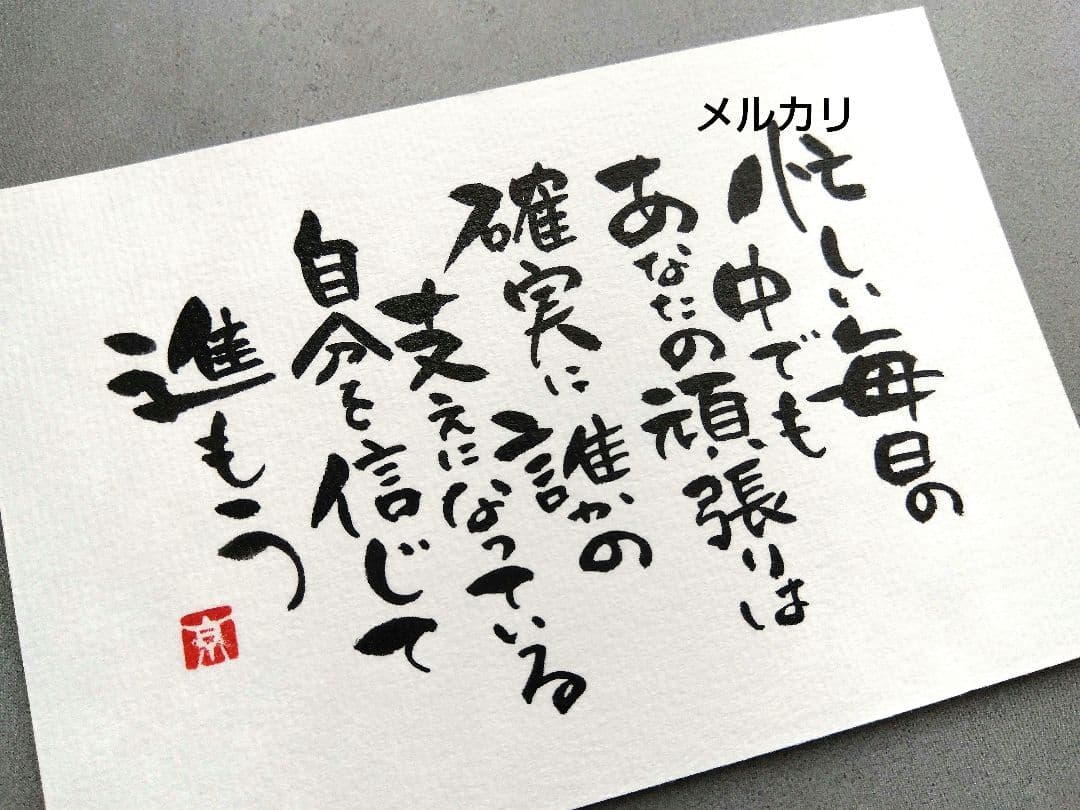 メルカリ
忙しい毎日の
中でも
あなたの頑張りは
確実に誰かの
支えになっている
自分を信じて
進もう
京